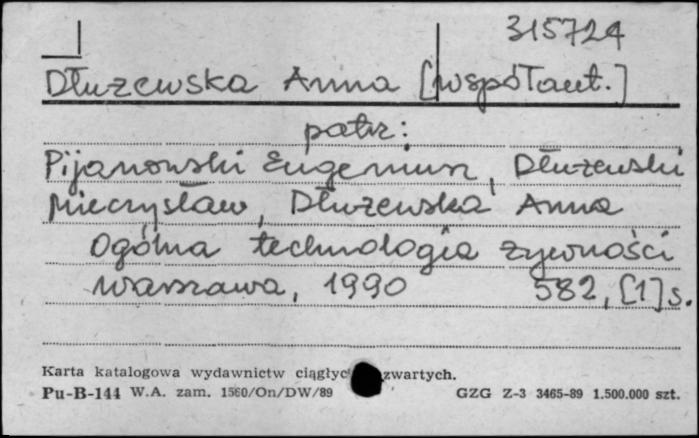 315724
Dłużewska Anna [współaut.]
patrz:
Pijanowski Eugeniusz, Dłużewski
Mieczysław, Dłużewska Anna
Ogólna technologia żywności
Warszawa, 1990 582, [1] s.
Karta katalogowa wydawnictw ciągłyc zwartych.
Pu-B-144 W.A. zam. 1560/On/DW/89 GZG Z-3 3465-89 1.500.000 szt.